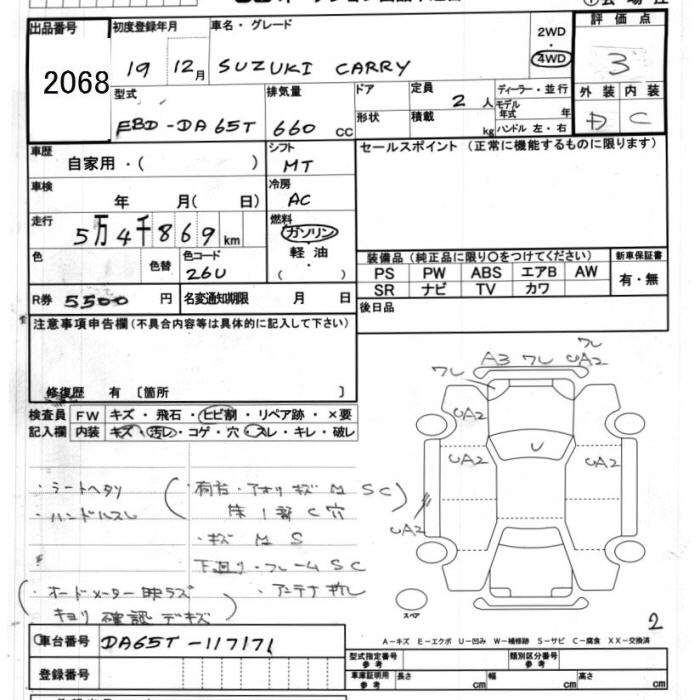 出品番号
2068
初度登録年月
19 12月
車名・グレード
SUZUKI CARRY
2WD
・
4WD
評価点
3
外装 内装
D C
型式
EBD-DA65T
排気量
660 cc
ドア
形状
定員
2 人
積載
kg
ディーラー・並行
モデル
年式 年
ハンドル 左・右
車歴
自家用・( )
シフト
MT
セールスポイント (正常に機能するものに限ります)
車検
年 月( 日)
冷房
AC
走行
5万4千869km
燃料
ガソリン
軽油
( )
色
色替
色コード
26U
装備品 (純正品に限り〇をつけてください)
PS PW ABS エアB AW
SR ナビ TV カワ
新車保証書
有・無
R券 5500 円
名変通知期限 月 日
後日品
注意事項申告欄(不具合内容等は具体的に記入して下さい)
修復歴 有 〔箇所 〕
検査員
記入欄
FW キズ・飛石・ヒビ割・リペア跡・×要
内装 キズ・汚レ・コゲ・穴・スレ・キレ・破レ
・シートヘタリ
・ハンドルスレ
荷台・アオリキズ M S C
床1部 C 穴
・キズ M S
下廻り・フレーム S C
・オードメーター映ラズ
キョリ確認デキズ
・アンテナ
ワレ A3 ワレ ワレ UA2
UA2 UA2
U
UA2 UA2
UA2
スペア
2
A-キズ E-エクボ U-凹み W-補修跡 S-サビ C-腐食 XX-交換済
車台番号 DA65T-117171
登録番号
型式指定番号
参考
類別区分番号
参考
車庫証明用
参考
長さ cm 幅 cm 高さ cm